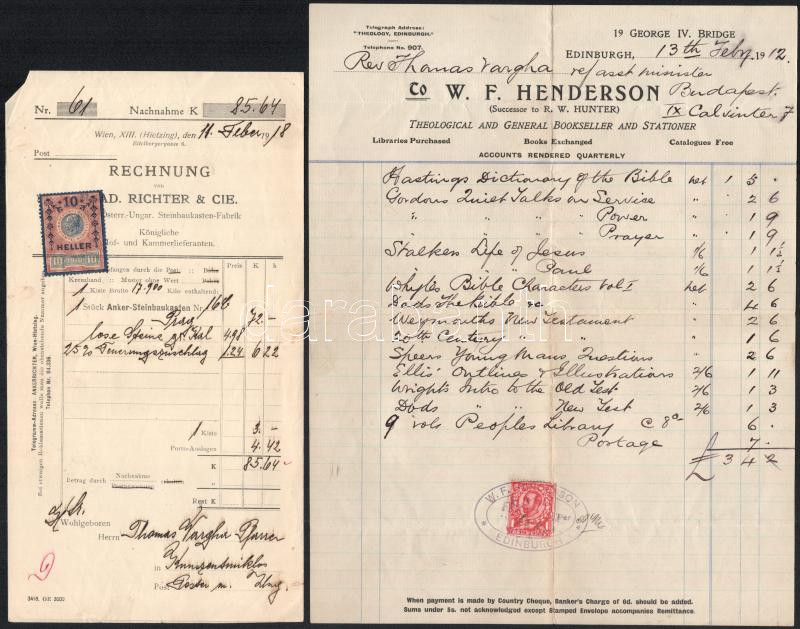 Nr. 61 Nachnahme K 85.64
Wien, XIII. (Hietzing), den 11. Feber 1918
Post
RECHNUNG
von
AD. RICHTER & CIE.
Österr.-Ungar. Steinbaukasten-Fabrik
Königliche
Hof- und Kammerlieferanten.
10
HELLER
10 1910 10
durch die Post: Bahn
Kreuzband: Muster ohne Wert
1 Kiste Brutto Kilo enthaltend:
Preis K h
1 Stück Anker-Steinbaukasten Nr.
72 -
lose Steine 4.98
25% Teuerungszuschlag 1.24 6 22
1 Kiste 3.-
Porto-Auslagen 4.42
K 85.64
Betrag durch Nachnahme erhalten
Rest K
Telegramm-Adresse: ANKERRICHTER, Wien-Hietzing.
Wohlgeboren
Herrn Thomas Vargha Pfarrer
in Kunszentmiklos
Post
3418. OE 3000.
Telegraph Address:
"THEOLOGY, EDINBURGH."
Telephone No. 907.
19 GEORGE IV. BRIDGE
EDINBURGH, 13th Feby. 1912.
Rev Thomas Vargha ref asst minister
To W. F. HENDERSON Budapest.
(Successor to R. W. HUNTER) IX Calvinter 7
THEOLOGICAL AND GENERAL BOOKSELLER AND STATIONER
Libraries Purchased Books Exchanged Catalogues Free
ACCOUNTS RENDERED QUARTERLY
Hastings Dictionary of the Bible net 1 5 .
Gordons Quiet Talks on Service " 2 6
" " " " Power " 1 9
" " " " Prayer " 1 9
Stalkers Life of Jesus 1/6 1 1½
" " " Paul 1/6 1 1½
Whytes Bible Characters Vol I net 2 6
Dods The Bible &c " 4 6
Weymouths New Testament " 2 6
20th Century " " 1 6
Speers Young Mans Questions " 2 6
Ellis' Outlines & Illustrations 2/6 1 11
Wrights Intro to the Old Test 2/6 1 3
Dods " " " New Test 2/6 1 3
9 vols Peoples Library @ 8d 6 .
Postage 7 .
£ 3 4 2
W. F. HENDERSON
Per
EDINBURGH
When payment is made by Country Cheque, Banker's Charge of 6d. should be added.
Sums under 5s. not acknowledged except Stamped Envelope accompanies Remittance.